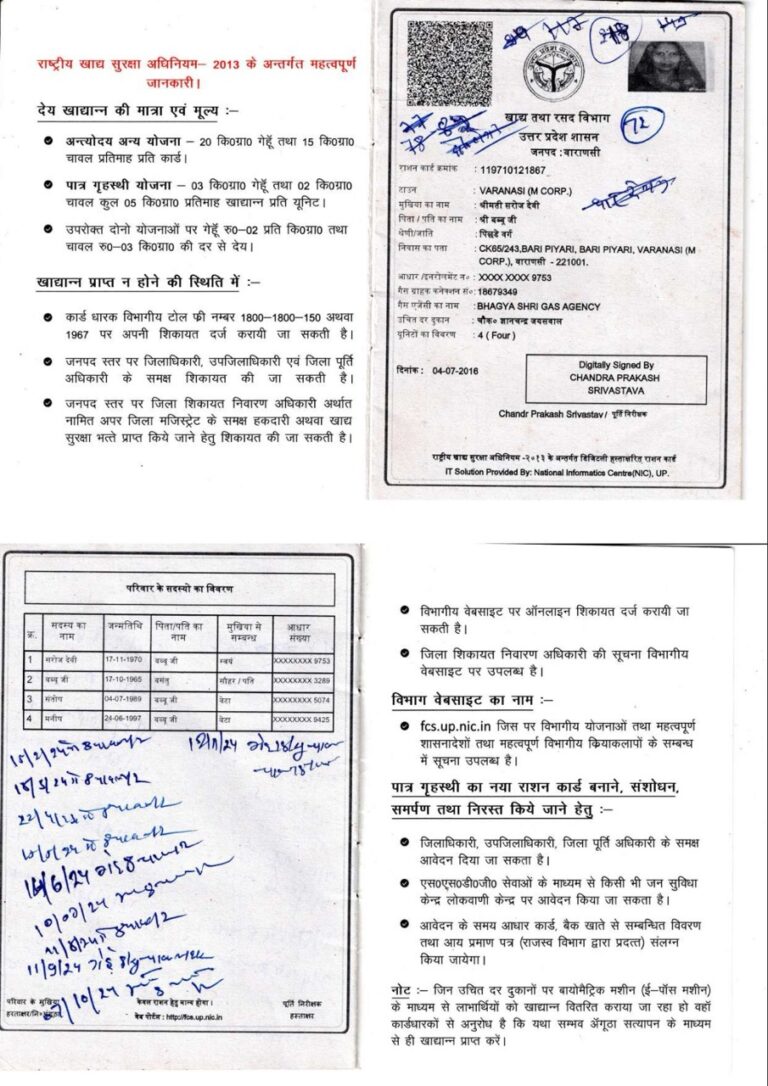 राष्ट्रीय खाद्य सुरक्षा अधिनियम– 2013 के अन्तर्गत महत्वपूर्ण
जानकारी।
देय खाद्यान्न की मात्रा एवं मूल्य :–
अन्त्योदय अन्य योजना – 20 कि0ग्रा0 गेहूँ तथा 15 कि0ग्रा0
चावल प्रतिमाह प्रति कार्ड।
पात्र गृहस्थी योजना – 03 कि0ग्रा0 गेहूँ तथा 02 कि0ग्रा0
चावल कुल 05 कि0ग्रा0 प्रतिमाह खाद्यान्न प्रति यूनिट।
उपरोक्त दोनो योजनाओं पर गेहूँ रु0–02 प्रति कि0ग्रा0 तथा
चावल रु0–03 कि0ग्रा0 की दर से देय।
खाद्यान्न प्राप्त न होने की स्थिति में :–
कार्ड धारक विभागीय टोल फ्री नम्बर 1800–1800–150 अथवा
1967 पर अपनी शिकायत दर्ज करायी जा सकती है।
जनपद स्तर पर जिलाधिकारी, उपजिलाधिकारी एवं जिला पूर्ति
अधिकारी के समक्ष शिकायत की जा सकती है।
जनपद स्तर पर जिला शिकायत निवारण अधिकारी अर्थात
नामित अपर जिला मजिस्ट्रेट के समक्ष हकदारी अथवा खाद्य
सुरक्षा भत्ते प्राप्त किये जाने हेतु शिकायत की जा सकती है।
खाद्य तथा रसद विभाग
उत्तर प्रदेश शासन
72
जनपद : वाराणसी
राशन कार्ड क्रमांक : 119710121867
टाउन : VARANASI (M CORP.)
मुखिया का नाम : श्रीमती सरोज देवी
पिता / पति का नाम : श्री बब्बू जी
श्रेणी/जाति : पिछड़े वर्ग
निवास का पता : CK65/243,BARI PIYARI, BARI PIYARI, VARANASI (M
CORP.), वाराणसी - 221001.
आधार /इनरोलमेंट न० : XXXX XXXX 9753
गैस ग्राहक कनेक्शन सं०: 18679349
गैस एजेंसी का नाम : BHAGYA SHRI GAS AGENCY
उचित दर दुकान : चौक० ज्ञानचन्द्र जयसवाल
यूनिटों का विवरण : 4 ( Four )
दिनांक : 04-07-2016
Digitally Signed By
CHANDRA PRAKASH
SRIVASTAVA
Chandr Prakash Srivastav / पूर्ति निरीक्षक
राष्ट्रीय खाद्य सुरक्षा अधिनियम -२०१३ के अन्तर्गत डिजिटली हस्ताक्षरित राशन कार्ड
IT Solution Provided By: National Informatics Centre(NIC), UP.
परिवार के सदस्यो का विवरण
क्र. सदस्य का नाम जन्मतिथि पिता/पति का नाम मुखिया से सम्बन्ध आधार संख्या
1 सरोज देवी 17-11-1970 बब्बू जी स्वयं XXXXXXXX 9753
2 बब्बू जी 17-10-1965 बसंतू शौहर / पति XXXXXXXX 3289
3 संतोष 04-07-1989 बब्बू जी बेटा XXXXXXXX 5074
4 मनीष 24-06-1997 बब्बू जी बेटा XXXXXXXX 9425
11/9/24
परिवार के मुखिया केवल राशन हेतु मान्य होगा। पूर्ति निरीक्षक
वेब पोर्टल : http://fcs.up.nic.in हस्ताक्षर
विभागीय वेबसाइट पर ऑनलाइन शिकायत दर्ज करायी जा
सकती है।
जिला शिकायत निवारण अधिकारी की सूचना विभागीय
वेबसाइट पर उपलब्ध है।
विभाग वेबसाइट का नाम :–
fcs.up.nic.in जिस पर विभागीय योजनाओं तथा महत्वपूर्ण
शासनादेशों तथा महत्वपूर्ण विभागीय क्रियाकलापों के सम्बन्ध
में सूचना उपलब्ध है।
पात्र गृहस्थी का नया राशन कार्ड बनाने, संशोधन,
समर्पण तथा निरस्त किये जाने हेतु :–
जिलाधिकारी, उपजिलाधिकारी, जिला पूर्ति अधिकारी के समक्ष
आवेदन दिया जा सकता है।
एस0एस0डी0जी0 सेवाओं के माध्यम से किसी भी जन सुविधा
केन्द्र लोकवाणी केन्द्र पर आवेदन किया जा सकता है।
आवेदन के समय आधार कार्ड, बैक खाते से सम्बन्धित विवरण
तथा आय प्रमाण पत्र (राजस्व विभाग द्वारा प्रदत्त) संलग्न
किया जायेगा।
नोट :– जिन उचित दर दुकानों पर बायोमैट्रिक मशीन (ई–पॉस मशीन)
के माध्यम से लाभार्थियों को खाद्यान्न वितरित कराया जा रहा हो वहाँ
कार्डधारकों से अनुरोध है कि यथा सम्भव अँगूठा सत्यापन के माध्यम
से ही खाद्यान्न प्राप्त करें।